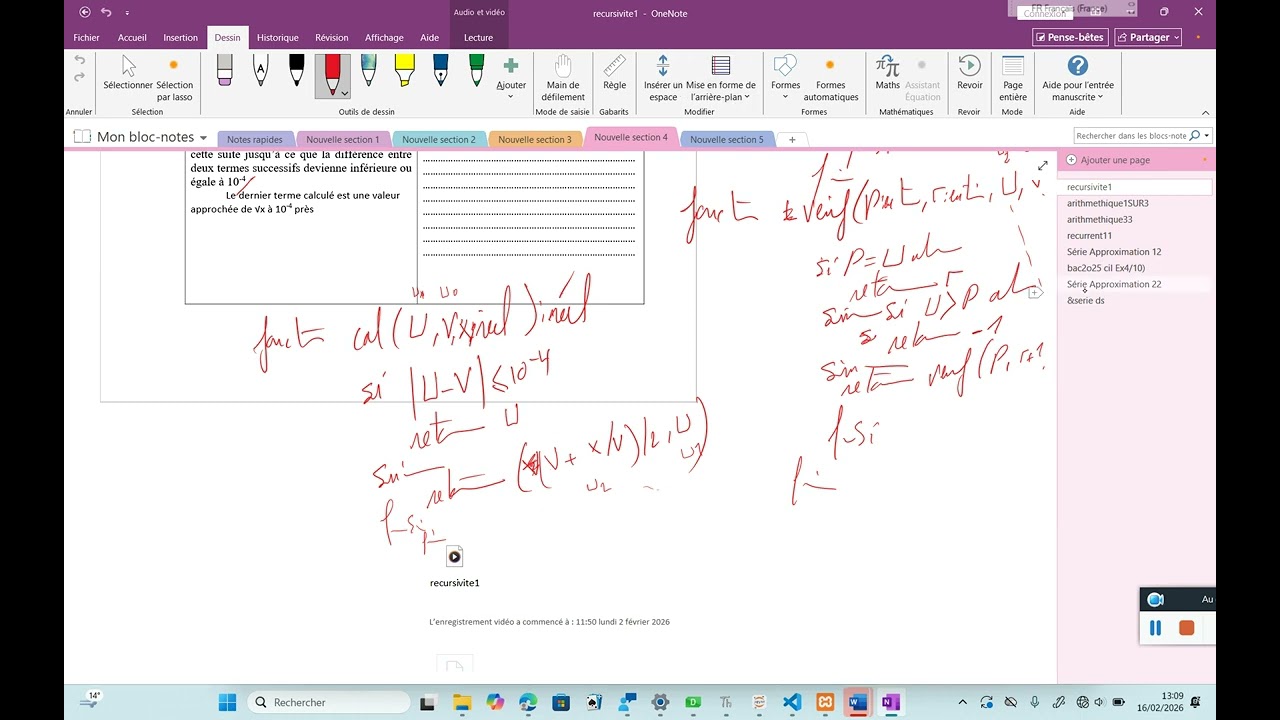 Audio et vidéo
recursivite1 - OneNote
FR Français (France)
Connexion
Fichier
Accueil
Insertion
Dessin
Historique
Révision
Affichage
Aide
Lecture
Pense-bêtes
Partager
Annuler
Sélectionner
Sélection par lasso
Sélection
Outils de dessin
Ajouter
Main de défilement
Mode de saisie
Règle
Gabarits
Insérer un espace
Mise en forme de l'arrière-plan
Modifier
Formes
Formes automatiques
Formes
Maths
Assistant Équation
Mathématiques
Revoir
Revoir
Page entière
Mode
Aide pour l'entrée manuscrite
Aide
Mon bloc-notes
Notes rapides
Nouvelle section 1
Nouvelle section 2
Nouvelle section 3
Nouvelle section 4
Nouvelle section 5
Rechercher dans les blocs-note
Ajouter une page
recursivite1
arithmethique1SUR3
arithmethique33
recurrent11
Série Approximation 12
bac2o25 cil Ex4/10)
Série Approximation 22
&serie ds
cette suite jusqu'à ce que la différence entre
deux termes successifs devienne inférieure ou
égale à 10⁻⁴
Le dernier terme calculé est une valeur
approchée de √x à 10⁻⁴ près
si |U-V| ≤ 10⁻⁴
U
si P = U
si U > P
- 1
f-si
recursivite1
L'enregistrement vidéo a commencé à : 11:50 lundi 2 février 2026
Au
14°
Rechercher
13:09
16/02/2026